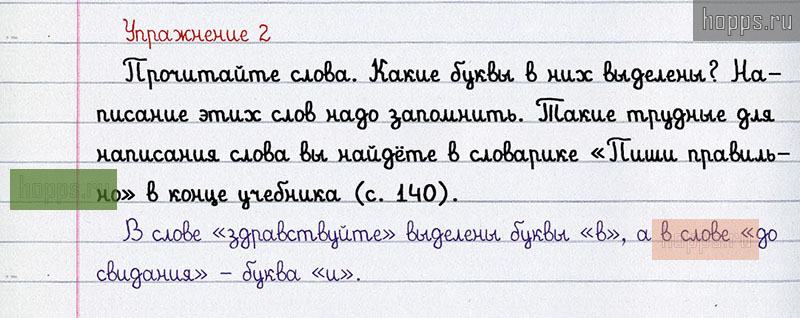 hopps.ru
Упражнение 2
Прочитайте слова. Какие буквы в них выделены? На-
писание этих слов надо запомнить. Такие трудные для
написания слова вы найдёте в словарике «Пиши правиль-
но» в конце учебника (с. 140).
hopps.ru
В слове «здравствуйте» выделены буквы «в», а в слове «до
hopps.ru
свидания» – буква «и».